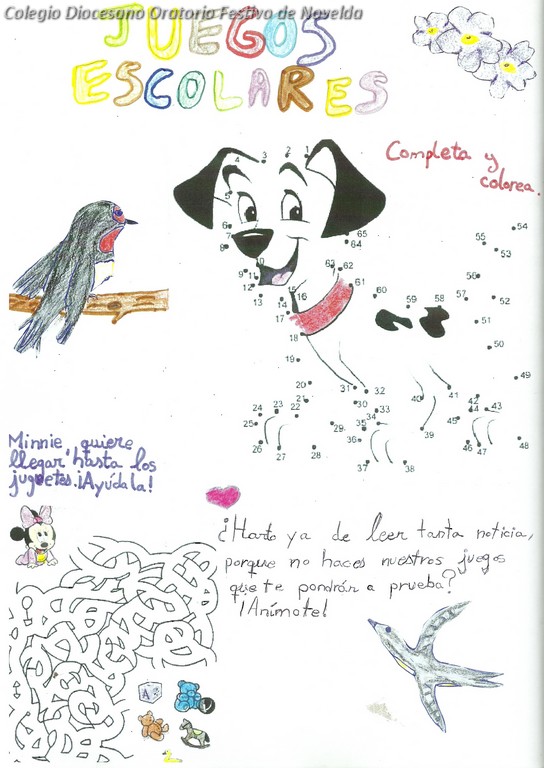 Colegio Diocesano Oratorio Festivo de Novelda
JUEGOS
ESCOLARES
Completa y
colorea.
Minnie quiere
llegar hasta los
juguetes. ¡Ayúdala!
¿Harto ya de leer tanta noticia,
porque no haces nuestros juegos
que te pondrán a prueba?
¡Anímate!
1
2
3
4
5
6
7
8
9
10
11
12
13
14
15
16
17
18
19
20
21
22
23
24
25
26
27
28
29
30
31
32
33
34
35
36
37
38
39
40
41
42
43
44
45
46
47
48
49
50
51
52
53
54
55
56
57
58
59
60
61
62
63
64
65
A 2